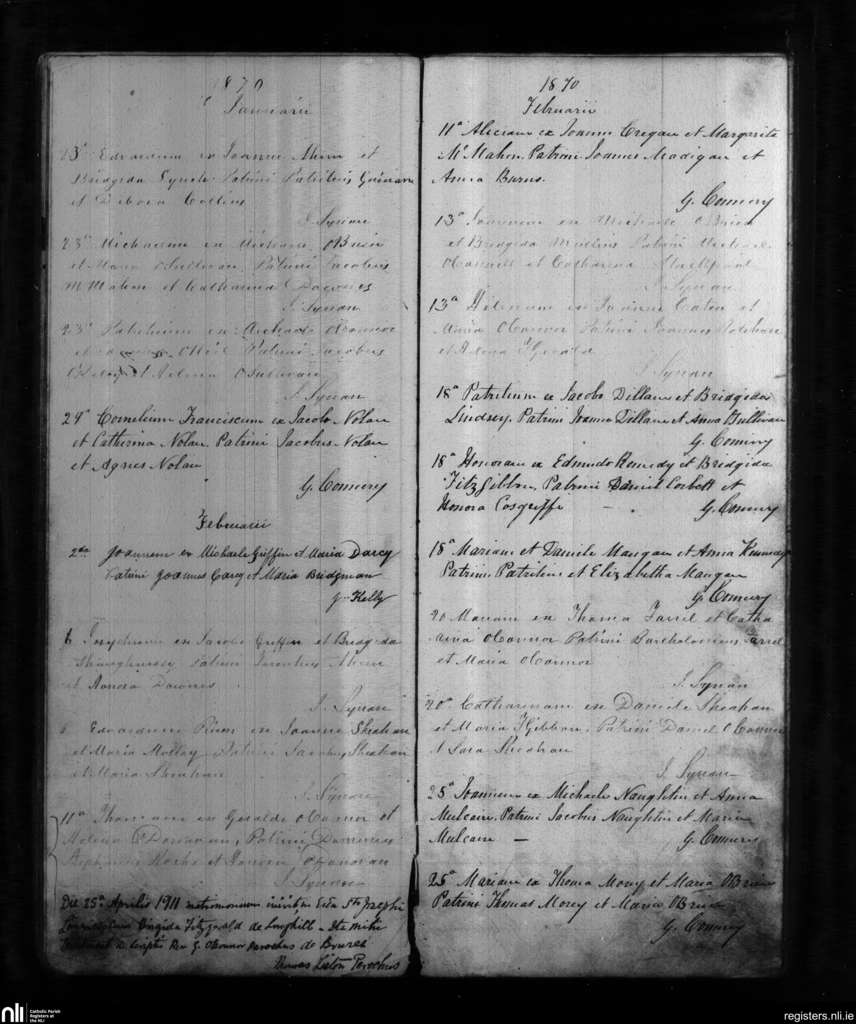 1870
Januarii
23ª Edvardum ex Joanne Ahern et
Bridgida Lynch Patrini Patritius
et Debora Collins
J. Synan
23ª Michaelem ex Michaele OBrien
et Maria OSullivan, Patrini Jacobus
McMahon et Catharina Downes
J. Synan
23ª Patritium ex
ONeil Patrini Jacobus
et Helena OSullivan
J. Synan
29ª Cornelium Franciscum ex Jacobo Nolan
et Catherina Nolan, Patrini Jacobus Nolan
et Agnes Nolan
G. Connery
Februarii
2da Joannem ex Michaele Griffin et Maria Darcy
Patrini Joannes Carey et Maria Bridgman
J Kelly
6 ex Jacobo Griffin et Bridgida
Shaughnessy Patrini Ahern
et Honora Downes
J. Synan
6 Edvardum ex Joanne Sheahan
et Maria Molloy Patrini Jacobus Sheahan
et Maria Sheahan
J. Synan
11ª Thomam ex Geraldo OConnor et
Helena ODonovan, Patrini
et ODonovan
J. Synan
Die 25ª Aprilis 1911 matrimonium inivit in Eccla Sti Josephi
Brigida Fitzgerald de Loughill - Ita mihi
Rev G. OConnor Parochus de Bruree
Thomas Liston Parochus
1870
Februarii
11ª Aliciam ex Joanne Cregan et Margarita
McMahon, Patrini Joannes Madigan et
Anna Burns.
G. Connery
13ª Joannem ex Michaele OBrien
et Bridgida Mullins Patrini Michael
OConnell et Catharina
J. Synan
13ª Helenam ex Joanne Eaton et
Maria OConnor Patrini Joannes
et Helena FGerald
J. Synan
18ª Patritium ex Jacobo Dillane et Bridgida
Lindsey, Patrini Joannes Dillane et Anna Sullivan
G. Connery
18ª Honoram ex Edmundo Kennedy et Bridgida
FitzGibbon, Patrini Daniel Corbett et
Honora Cosgriffe - . G. Connery
18ª Mariam et Daniele Mangan et Anna Kennedy
Patrini Patritius et Elizabetha Mangan
G. Connery
20 Mariam ex Thoma Farrel et Catha
rina OConnor Patrini Bartholomeus Farrel
et Maria OConnor
J. Synan
20ª Catharinam ex Daniele Sheahan
et Maria FGibbon, Patrini Daniel OConnor
et Sara Sheahan
J. Synan
25ª Joannem ex Michaele Naughtin et Anna
Mulcare, Patrini Jacobus Naughtin et Maria
Mulcare - G. Connery
25ª Mariam ex Thoma Mory et Maria OBrien
Patrini Thomas Morey et Maria OBrien
G. Connery
nli
Catholic Parish
Registers at
the NLI
registers.nli.ie